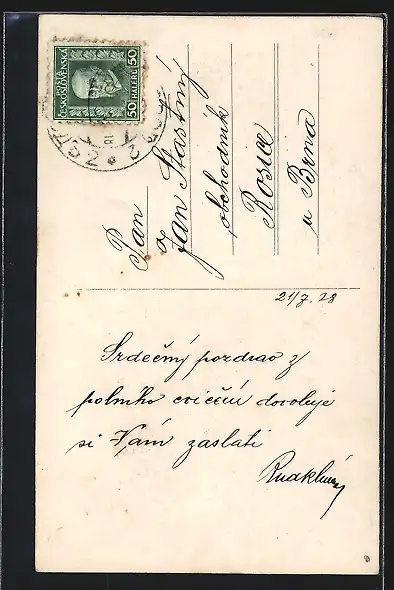 POŠTA
ČESKOSLOVENSKÁ
50 HALÉŘŮ 50
Pan
Jan Šťastný
obchodník
Rosice
u Brna
21/7. 28
Srdečný pozdrav z
polního cvičení dovoluje
si Vám zaslati